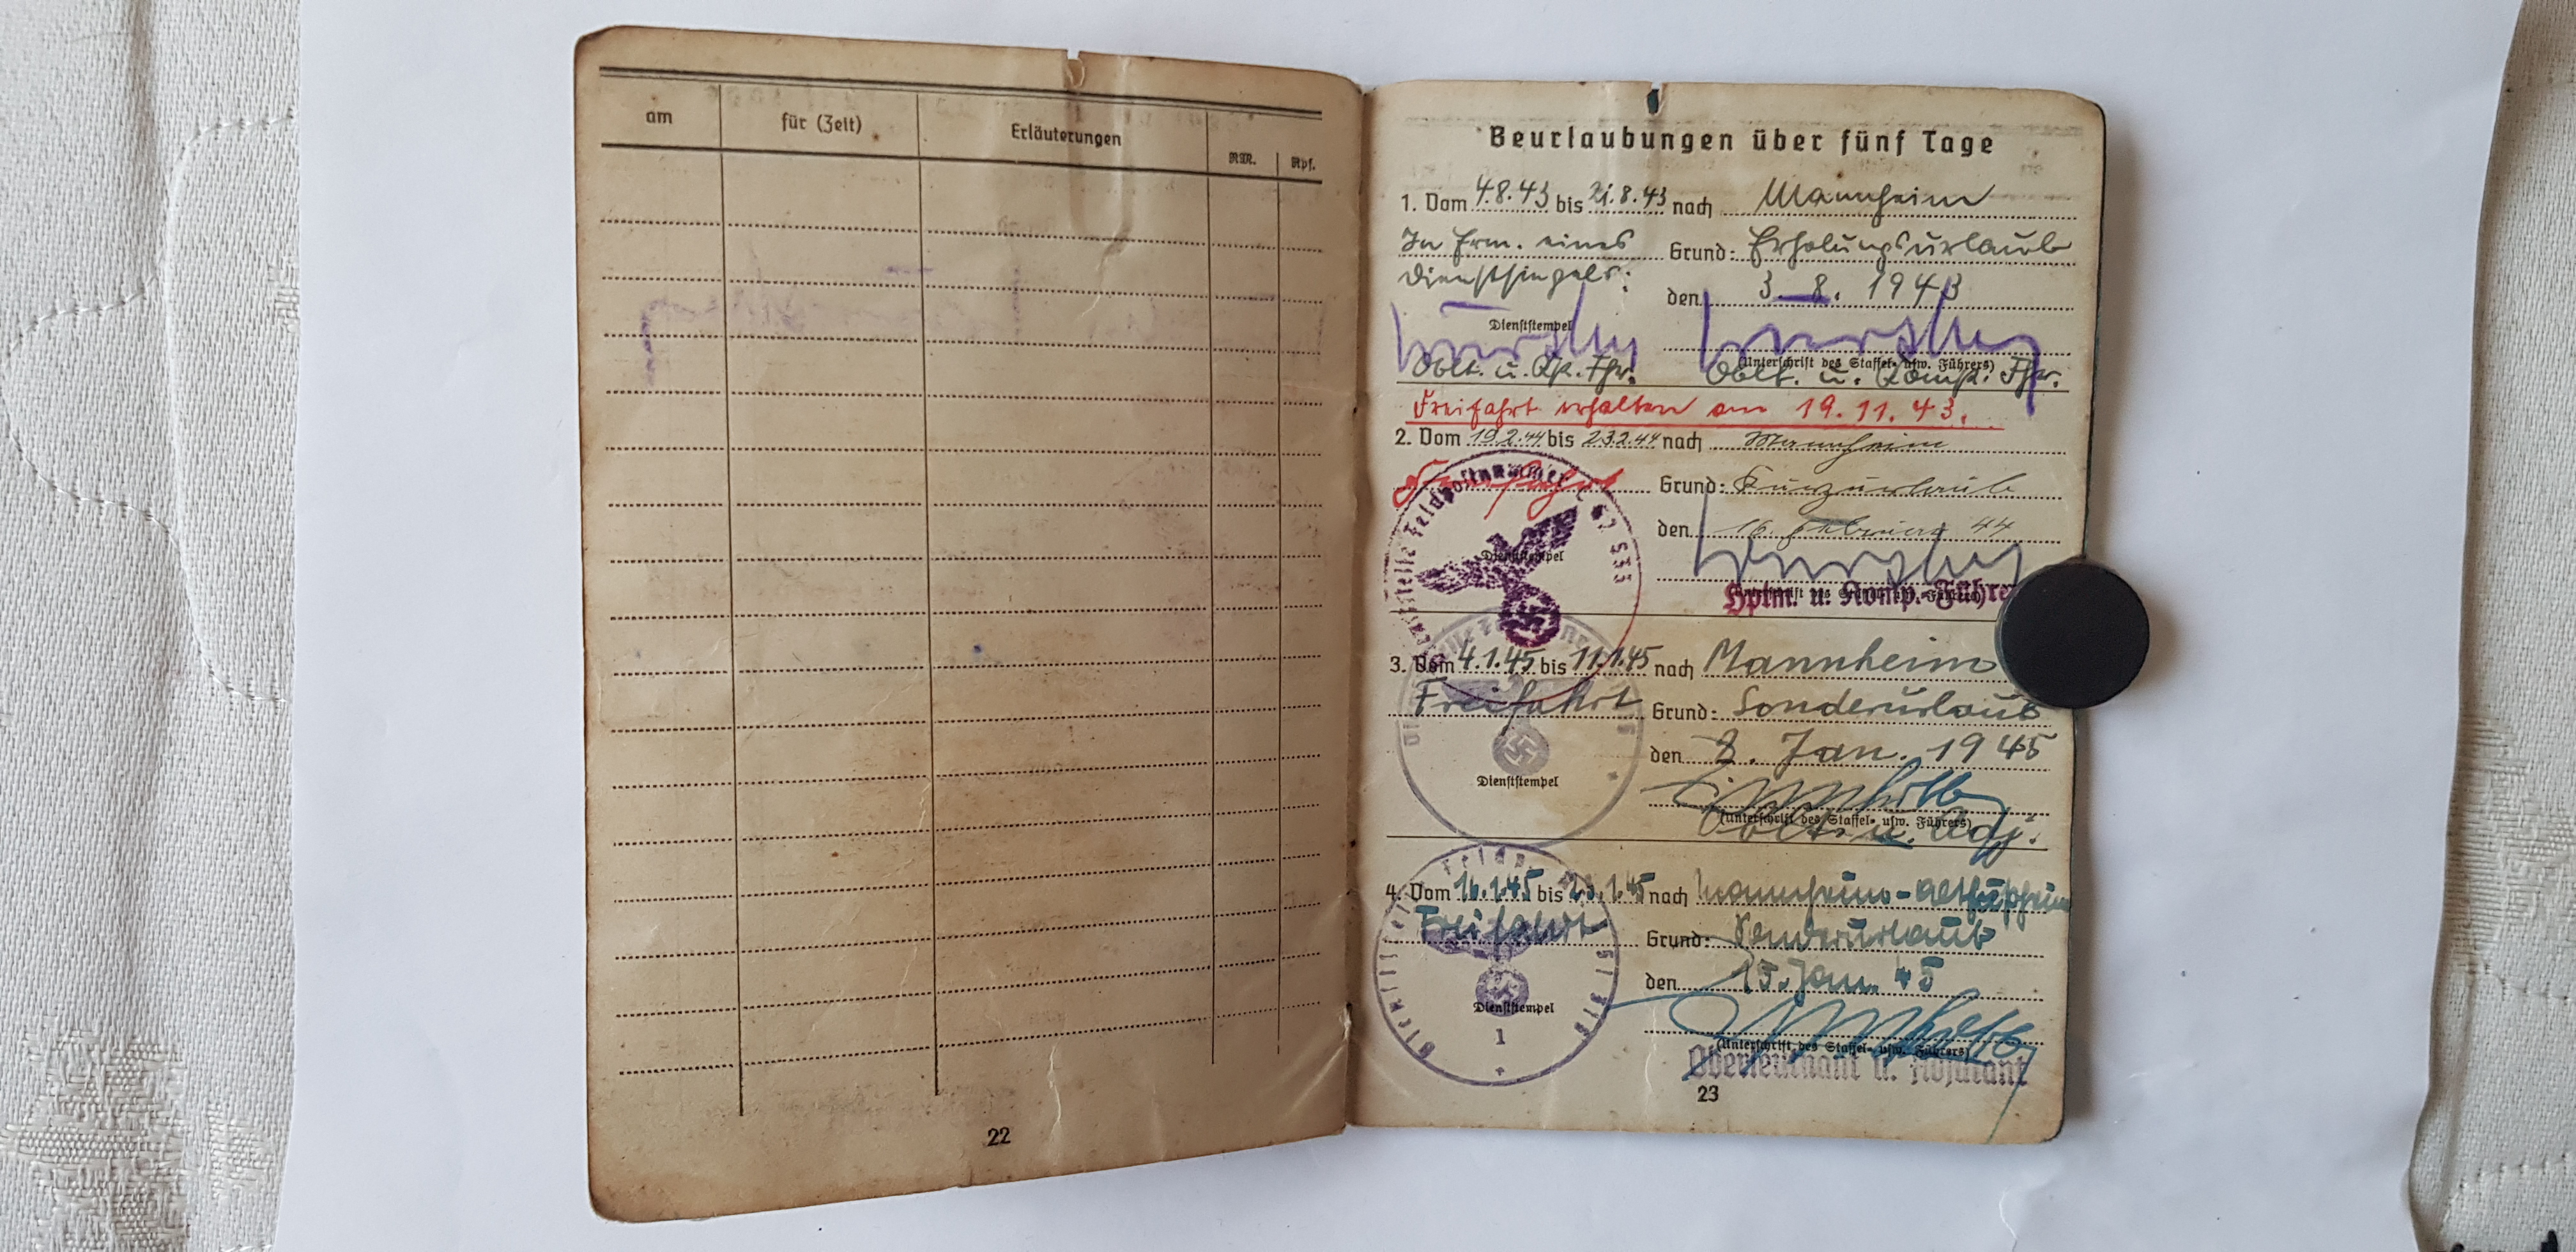 am für (Zeit) Erläuterungen RM. Rpf.
22
Beurlaubungen über fünf Tage
1. Vom 4.8.43 bis 21.8.43 nach Mannheim
In Erm. eines Grund: Erholungsurlaub
Dienstsiegels:
den 3. 8. 1943
Dienststempel
(Unterschrift des Staffel- usw. Führers)
Oblt. u. Kp. Fhr. Oblt. u. Komp. Fhr.
Freifahrt erhalten am 19.11.43.
2. Vom 19.2.44 bis 23.2.44 nach Mannheim
Feldpostnummer
Grund: Kurzurlaub
den 16. Februar 44
Dienststempel
(Unterschrift des Staffel- usw. Führers)
Hptm. u. Komp.-Führe
3. Vom 4.1.45 bis 11.1.45 nach Mannheim
Freifahrt Grund: Sonderurlaub
den 2. Jan. 1945
Dienststempel
(Unterschrift des Staffel- usw. Führers)
Oblt. u. Adj.
4. Vom 16.1.45 bis 23.1.45 nach Mannheim-
Freifahrt Grund: Sonderurlaub
den 15. Jan. 45
Dienststempel
1
(Unterschrift des Staffel- usw. Führers)
Oberleutnant u. Adjutant
23